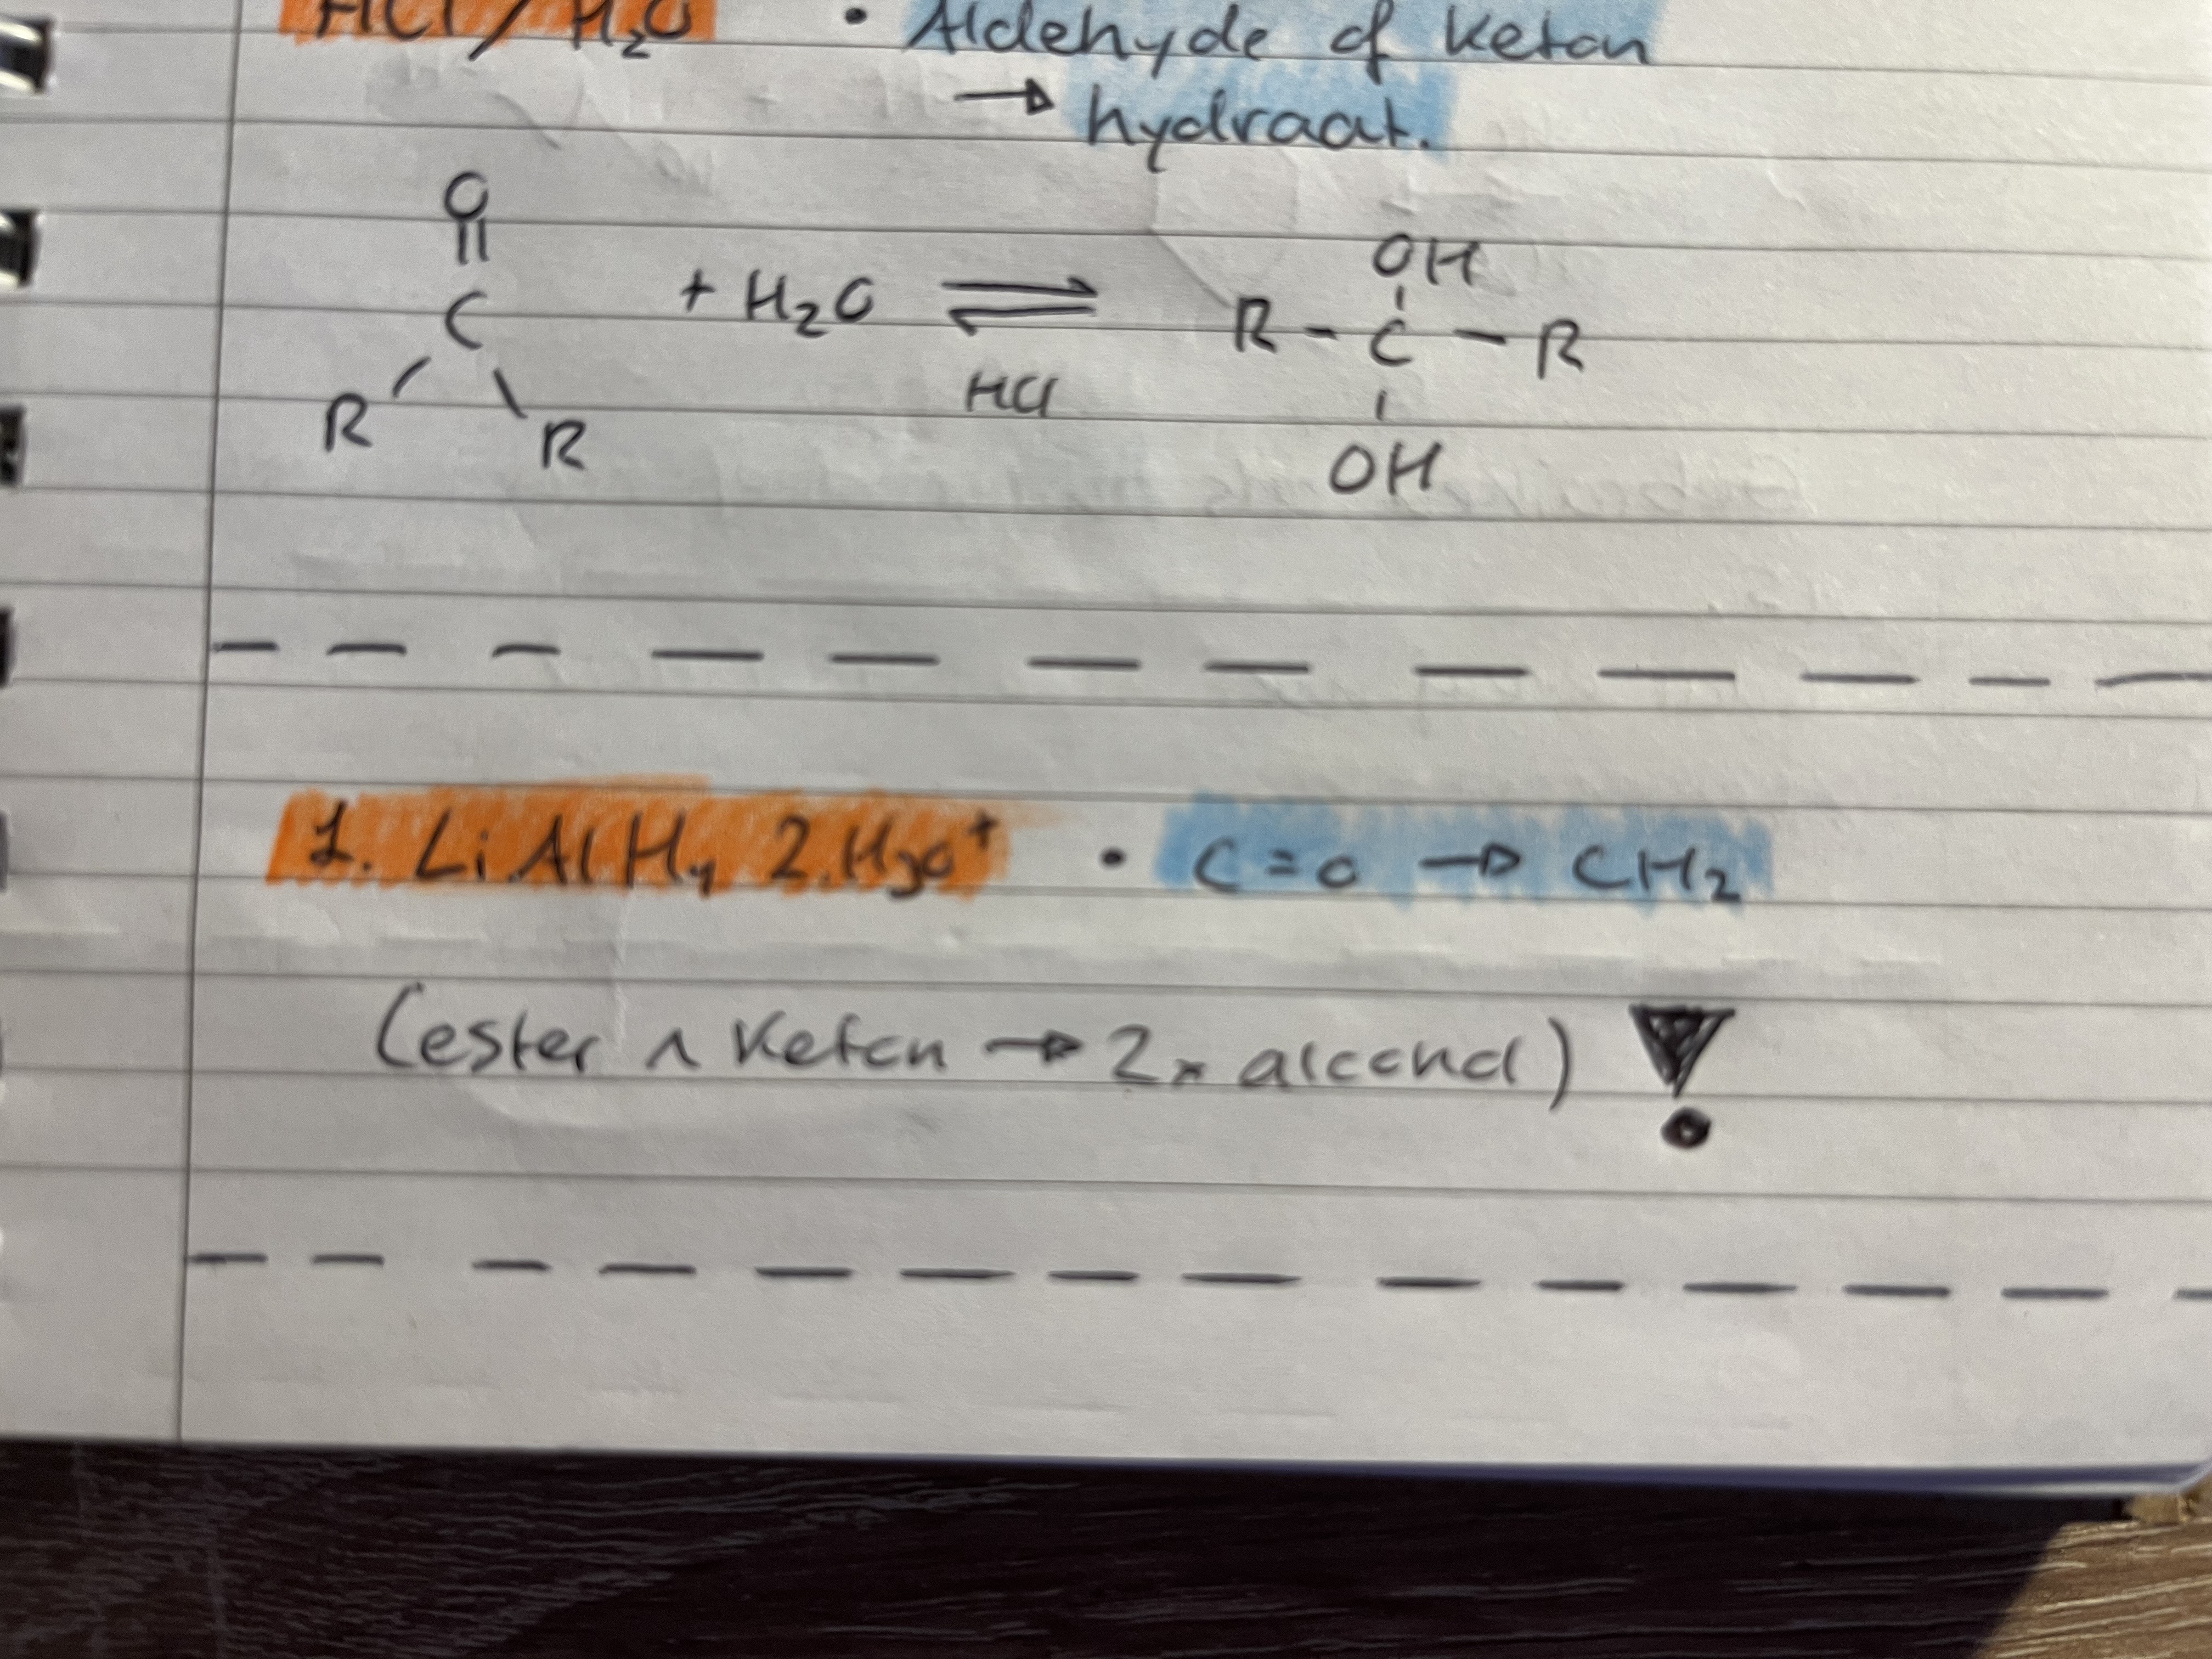 HCl / H₂O • Aldehyde of Keton
→ hydraat.
O
||
C + H₂O ⇌ R - C - R
R R HCl
OH
OH
1. LiAlH₄ 2. H₃O⁺ • C=O → CH₂
(ester ∧ Keton → 2x alcohol) !